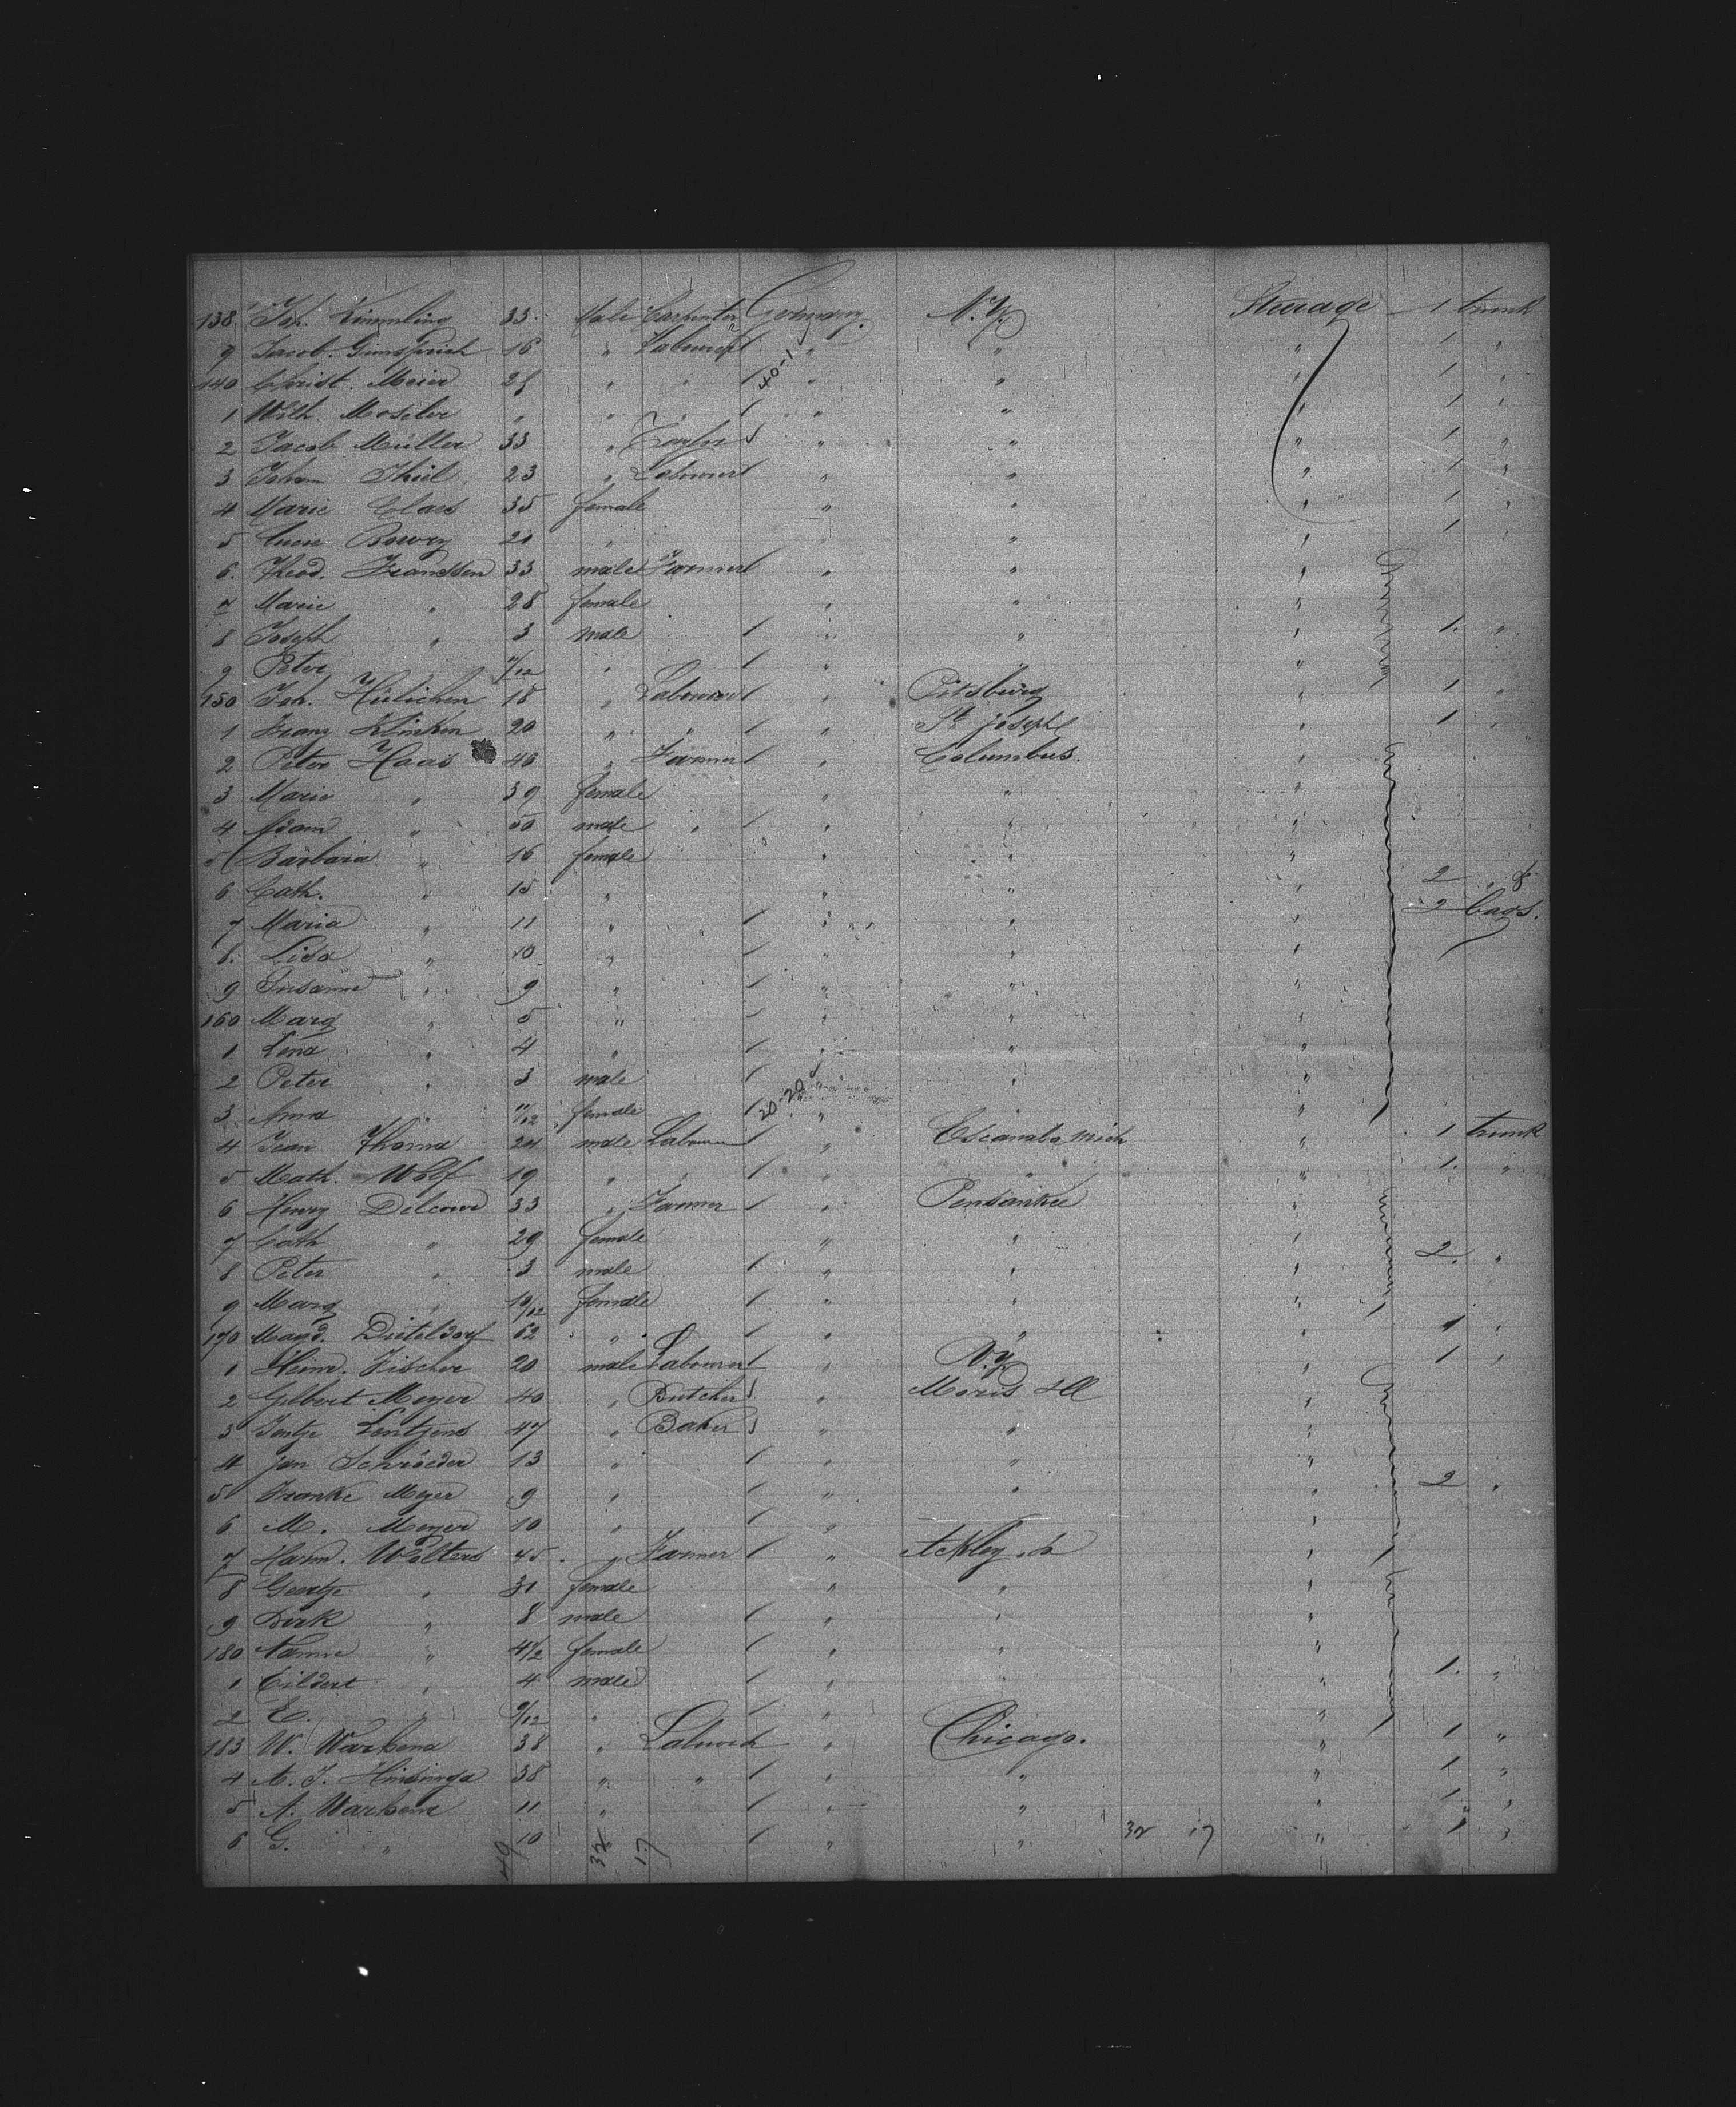 138 Joh. Kimmling 33 Male Carpenter Germany N.Y. Steerage 1 trunk
9 Jacob 16 " Labourer " " " 1 "
140 Christ. Meier 28 " " " " " 1 "
1 Wilh. Moseler " " " " " " 1 "
2 Jacob Müller 33 " Taylor " " " 1 "
3 Johan Thiel 23 " Labourer " " " 1 "
4 Marie Claes 35 female " " " 1 "
5 21 " " " " 1 "
6 Theod. Franssen 33 male Farmer " " "
7 Marie " 28 female " " "
8 Joseph " 3 male " " " 1 "
9 Peter " 11/12 " " " "
150 Joh. 18 " Labourer " Pitsburg " 1 "
1 Franz Klinken 20 " " " St. Joseph " 1 "
2 Peter Haas 40 " Farmer " Columbus. "
3 Marie " 39 female " " "
4 Adam " 50 male " " " "
5 Barbara " 16 female " " "
6 Cath. " 15 " " " " 2 " &
7 Maria " 11 " " " " 2 bags.
8 Lisa " 10 " " " "
9 Susanne " 9 " " " "
160 Marg " 5 " " " "
1 Lena " 4 " " " "
2 Peter " 3 male " " "
3 Anna " 11/12 female " " "
4 Jean Thoma 24 male Labourer " Escanaba Mich " 1 trunk
5 Math. Wolf 19 " " " " 1 "
6 Henry Delcour 33 " Farmer " Pensaukee "
7 Cath " 29 female " " " 2 "
8 Peter " 3 male " " "
9 Marg " 10/12 female " " "
170 Magd. Dieteldorf 62 " " " " 1 "
1 Heinr. Fischer 20 male Labourer " N.Y. " 1 "
2 Gilbert Meyer 40 " Butcher " Moris Ill "
3 47 " Baker " " "
4 Jan Schröeder 13 " " " "
5 Franke Meyer 9 " " " " 2 "
6 M. Meyer 10 " " "
7 Harm. Wolters 45 " Farmer " Ackley Io "
8 Geertje " 31 female " " "
9 Dirk " 8 male " " "
180 " 4 1/2 female " " "
1 Eildert " 4 male " " " 1 "
2 E. " 9/12 " " "
183 W. Warkena 38 " Labourer " Chicago. " 1 "
4 A. J. 38 " " " " " 1 "
5 A. Warkena 11 " " " " 1 "
6 G. " 10 " " 32 17 " 1 "
40-1
20-29
49 32 17